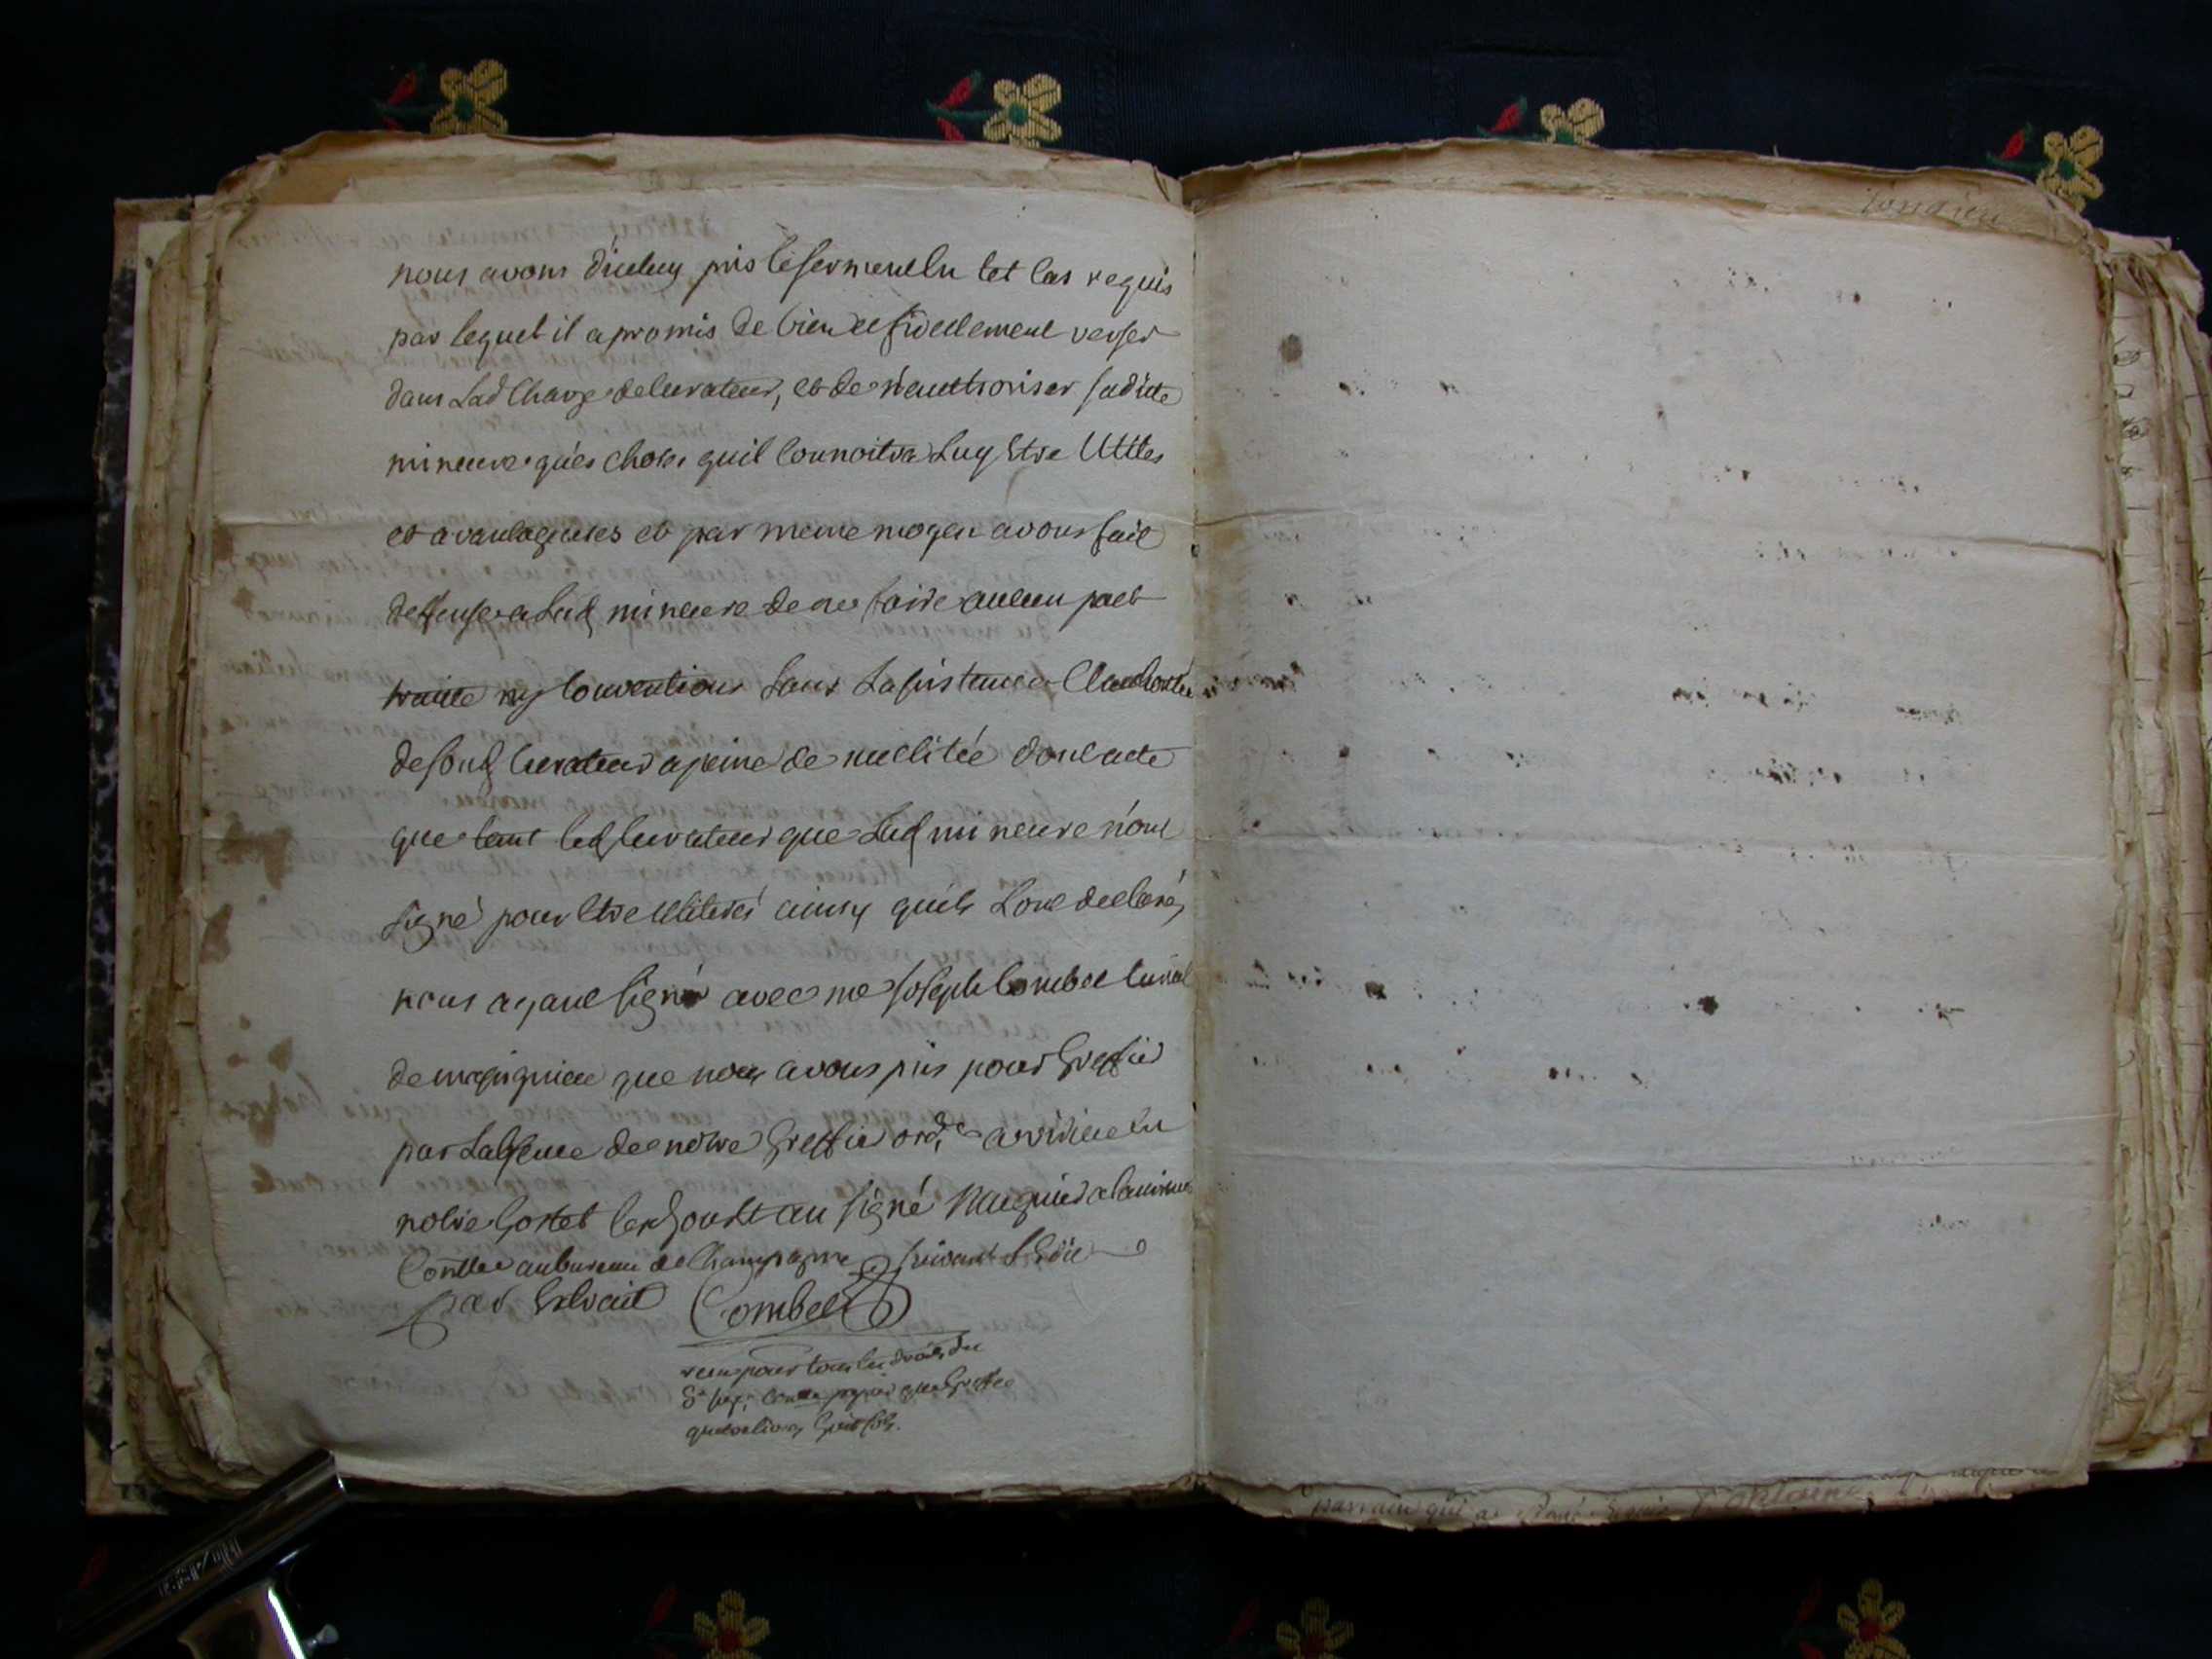 nous avons d'iceluy pris le serment en tel cas requis
par lequel il a promis de bien et fidellement verser
dans Lad charge de curateur, et de n'authoriser sadite
mineure qu'es choses quil connoitra Luy Etre Utiles
et avantageuses et par meme moyen avons fait
deffense a Lad mineure de ne faire aucun pact
traitté ny conventions sans Lasistance & Lauthorité
de sond curateur a peine de nullitée dont acte
que tant led curateur que Lad mineure n'ont
signé pour Etre illiterés ainsy quils Lont declaré,
nous ayant signé avec me Joseph Combet curial
de que nous avons pris pour Greffier
par Labsence de notre Greffier ordre a virieu en
notre hostel les an signé
Contlle au bureau de Champagne suivant L'Edit
par Extrait Combet
receu pour tous les droits du
Sr juge Contlle papier que Greffe
quatre livres huit sols.
parrain qui a